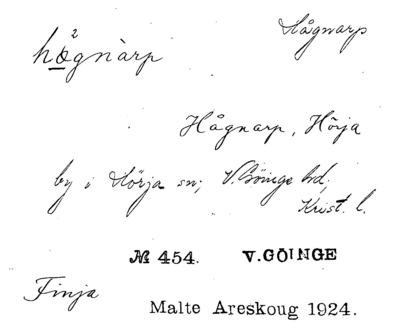 Hågnarp
hǫ²gnàrp
Hågnarp, Hörja
by i Hörja sn; V. Göinge hd;
Krist. l.
№ 454. V. GÖINGE
Finja
Malte Areskoug 1924.